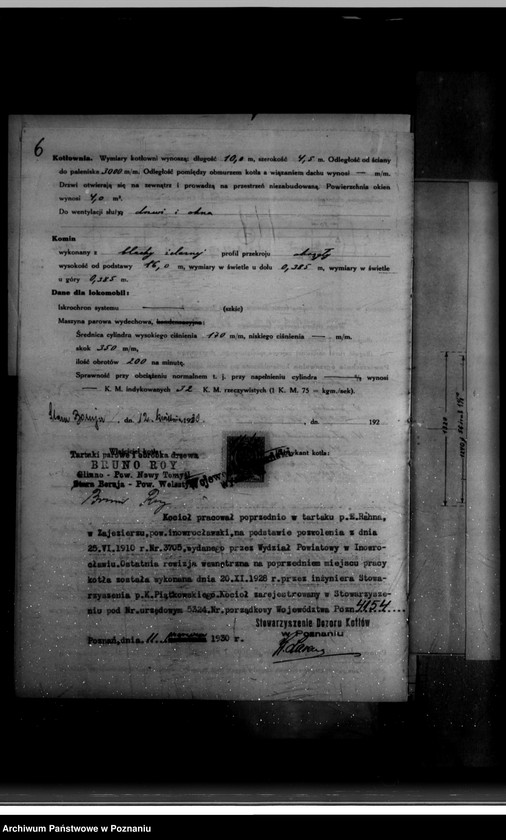 6
Kotłownia. Wymiary kotłowni wynoszą: długość 10,0 m, szerokość 4,5 m. Odległość od ściany
do paleniska 3000 m/m. Odległość pomiędzy obmurzem kotła a wiązaniem dachu wynosi — m/m.
Drzwi otwierają się na zewnątrz i prowadzą na przestrzeń niezabudowaną. Powierzchnia okien
wynosi 4,0 m².
Do wentylacji służą drzwi i okna
Komin
wykonany z blachy żelaznej profil przekroju okrągły
wysokość od podstawy 16,0 m, wymiary w świetle u dołu 0,385 m, wymiary w świetle
u góry 0,385 m.
Dane dla lokomobil:
Iskrochron systemu — (szkic)
Maszyna parowa wydechowa, kondensacyjna:
Średnica cylindru wysokiego ciśnienia 170 m/m, niskiego ciśnienia — m/m.
skok 350 m/m,
ilość obrotów 200 na minutę.
Sprawność przy obciążeniu normalnem t. j. przy napełnieniu cylindra — % wynosi
— K. M. indykowanych 52 K. M. rzeczywistych (1 K. M. 75 = kgm./sek).
Stara Boruja, dn. 12 kwietnia 1930 , dn. 192
Właściciel kotła:
Tartaki parowe i obróbka drzewa
BRUNO ROY
Glinno - Pow. Nowy Tomyśl
Stara Boruja - Pow. Wolsztyn
Bruno Roy
Kocioł pracował poprzednio w tartaku p. K. Hahna,
w Zajezierzu, pow. inowrocławski, na podstawie pozwolenia z dnia
25.VI.1910 r. Nr. 3705, wydanego przez Wydział Powiatowy w Inowro-
cławiu. Ostatnia rewizja wewnętrzna na poprzedniem miejscu pracy
kotła została wykonana dnia 20.XI.1928 r. przez inżyniera Stowa-
rzyszenia p. K. Piątkowskiego. Kocioł zarejestrowany w Stowarzysze-
niu pod Nr. urzędowym 5424. Nr. porządkowy Województwa Pozn 4154
Stowarzyszenie Dozoru Kotłów
w Poznaniu
Poznań, dnia 11. 1930 r.
Archiwum Państwowe w Poznaniu